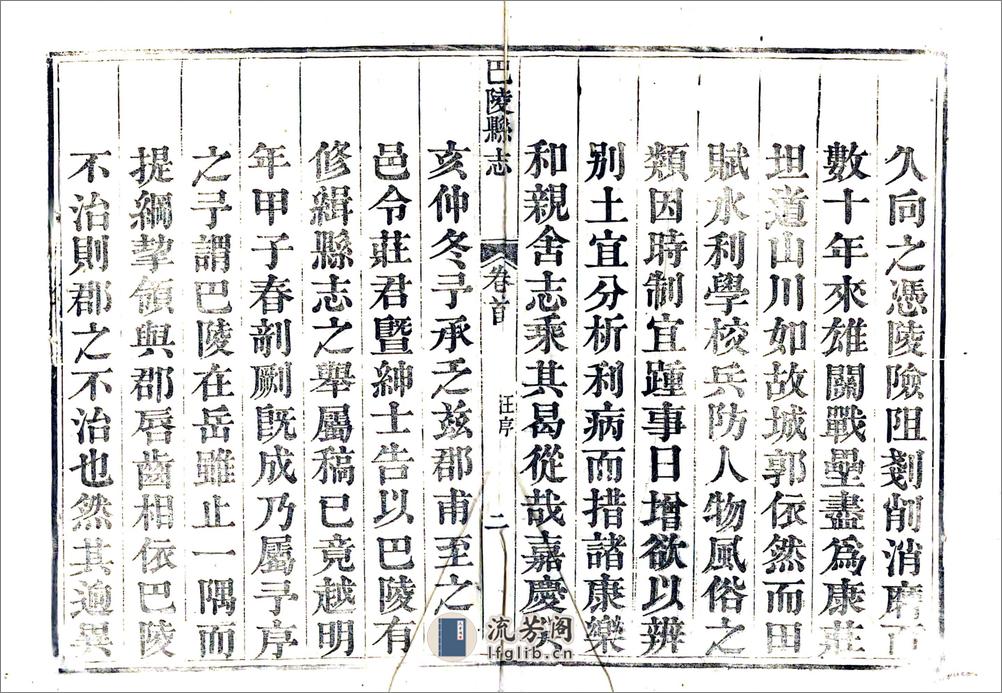 久向之憑陵險阻剗削消磨百
數十年來雄關戰壘盡爲康莊
坦道山川如故城郭依然而田
賦水利學校兵防人物風俗之
類因時制宜踵事日增欲以辨
別土宜分析利病而措諸康樂
和親舍志乘其曷從哉嘉慶
巴陵縣志 卷首 汪序 二
亥仲冬予承乏兹郡甫至之
邑令莊君暨紳士告以巴陵有
修緝縣志之舉屬稿已竟越明
年甲子春剞劂既成乃屬予序
之予謂巴陵在岳雖止一隅而
提綱挈領與郡唇齒相依巴陵
不治則郡之不治也然其異
流芳阁
lfglib.cn